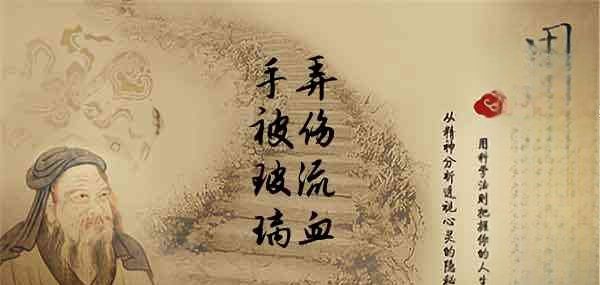 手被玻璃
弄伤流血
用科学法则把握你的人生
从精神分析透视心灵的隐秘